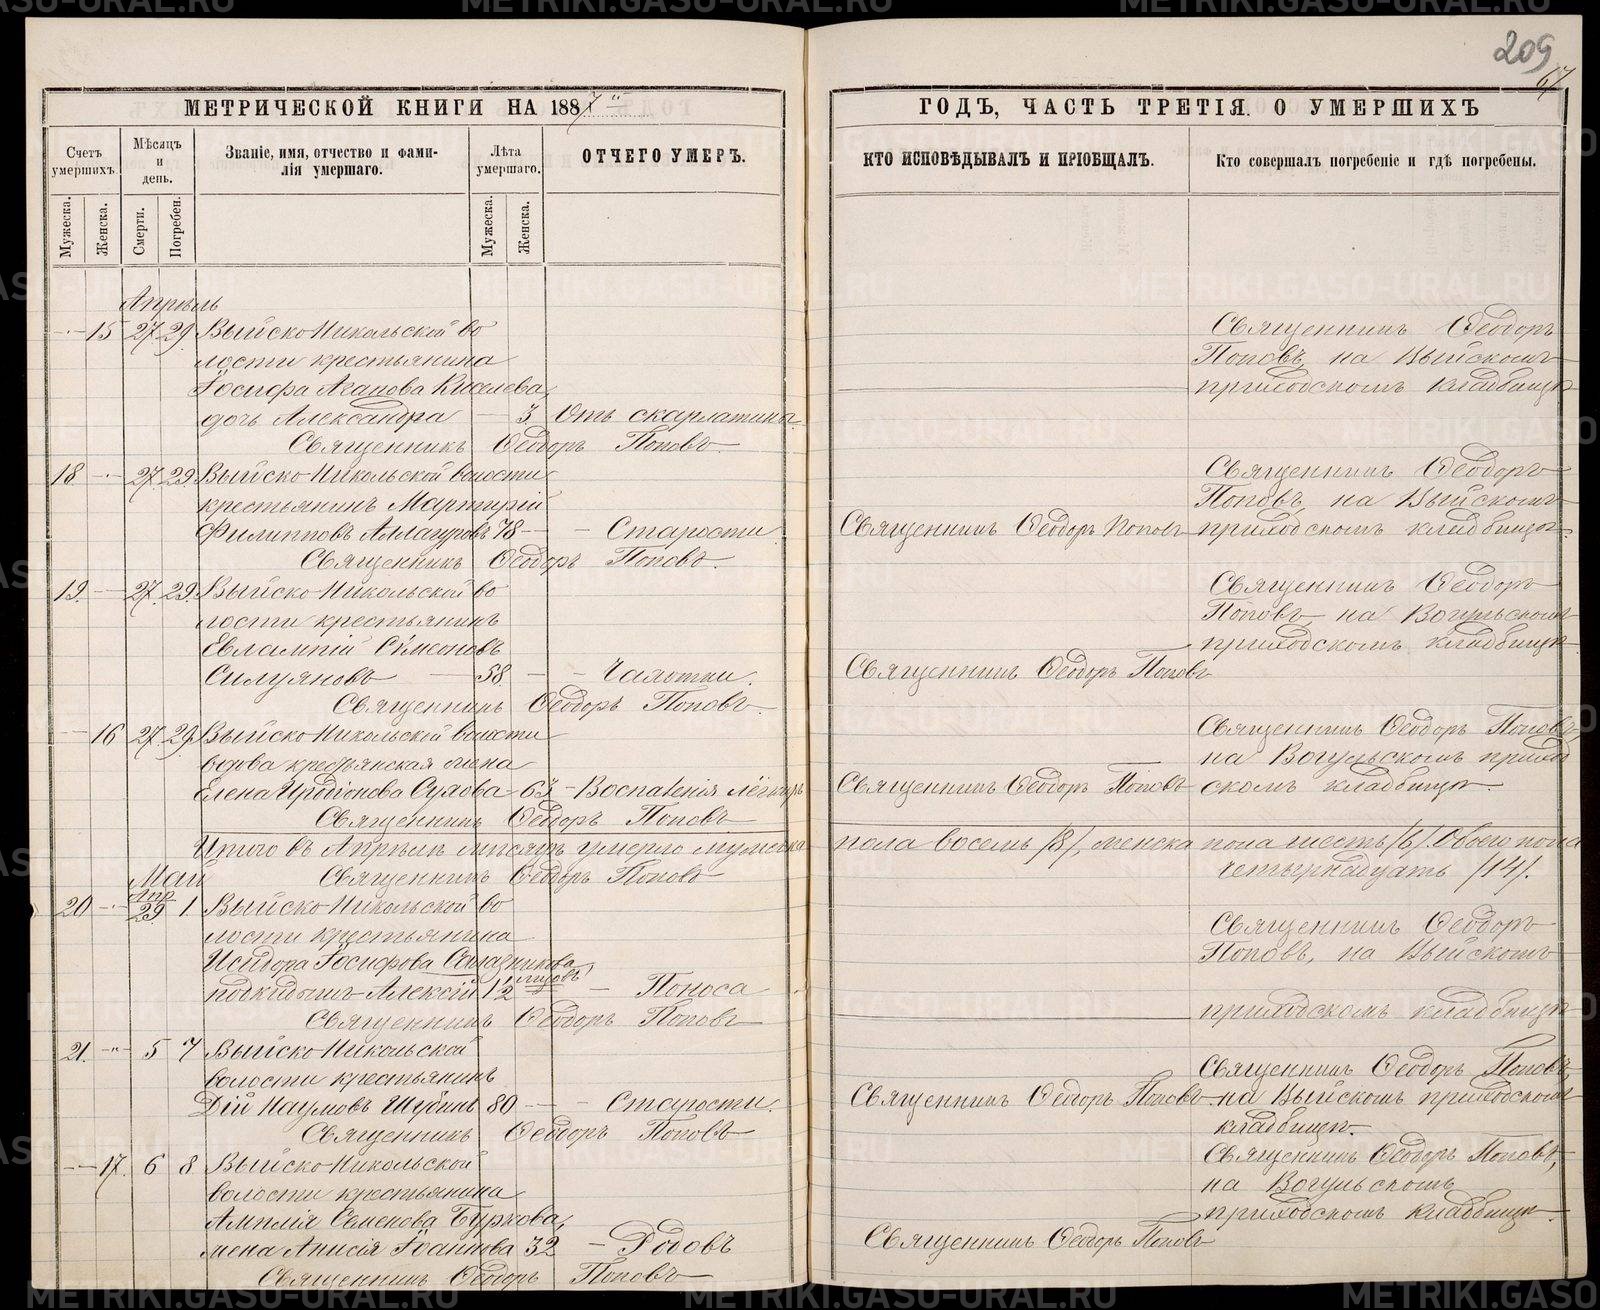 209
67
МЕТРИЧЕСКОЙ КНИГИ НА 1887
ГОДЪ, ЧАСТЬ ТРЕТІЯ. О УМЕРШИХЪ
Счетъ умершихъ.
Мужеска.
Женска.
Мѣсяцъ и день.
Смерти.
Погребен.
Званіе, имя, отчество и фами-
лія умершаго.
Лѣта умершаго.
Мужеска.
Женска.
ОТЧЕГО УМЕРЪ.
КТО ИСПОВѢДЫВАЛЪ И ПРІОБЩАЛЪ.
Кто совершалъ погребеніе и гдѣ погребены.
Апрѣль
15 27 29 Выйско-Никольской во
лости крестьянина
Іосифа Агапова Киселева
дочь Александра 3 Отъ скарлатины.
Священникъ Ѳеодоръ Поповъ.
Священникъ Ѳеодоръ
Поповъ, на Выйскомъ
приходскомъ кладбищѣ
18 27 29 Выйско-Никольской волости
крестьянинъ Мартирій
Филипповъ 78 Старости
Священникъ Ѳеодоръ Поповъ.
Священникъ Ѳеодоръ Поповъ
Священникъ Ѳеодоръ
Поповъ, на Выйскомъ
приходскомъ кладбищѣ.
19. 27 29 Выйско-Никольской во
лости крестьянинъ
Евлампій Сѵмеоновъ
Силуяновъ 58 Чахотки.
Священникъ Ѳеодоръ Поповъ.
Священникъ Ѳеодоръ Поповъ
Священникъ Ѳеодоръ
Поповъ, на Вогульскомъ
приходскомъ кладбищѣ
16 27 29 Выйско-Никольской волости
вдова крестьянская жена
Елена Иродіонова Сухова 63 Воспаленія лёгкихъ
Священникъ Ѳеодоръ Поповъ
Священникъ Ѳеодоръ Поповъ
Священникъ Ѳеодоръ Поповъ,
на Вогульскомъ приход
скомъ кладбищѣ.
Итого въ Апрѣлѣ мѣсяцѣ умерло мужеска пола восемь /8/, женска пола шесть /6/. Обоего пола
Священникъ Ѳеодоръ Поповъ четырнадцать /14/.
Май
20 Апр 29 1 Выйско-Никольской во
лости крестьянина
Исидора Іосифова
подкидышъ Алексій 1 1/2 Поноса
Священникъ Ѳеодоръ Поповъ
Священникъ Ѳеодоръ
Поповъ, на Выйскомъ
приходскомъ кладбищѣ
21. 5 7 Выйско-Никольской
волости крестьянинъ
Дій Наумовъ Шубинъ 80 Старости.
Священникъ Ѳеодоръ Поповъ
Священникъ Ѳеодоръ Поповъ
Священникъ Ѳеодоръ Поповъ,
на Выйскомъ приходскомъ
кладбищѣ.
17 6 8 Выйско-Никольской
волости крестьянина
Семенова Буркова,
жена Анисія Іоаннова 32 Родовъ
Священникъ Ѳеодоръ Поповъ
Священникъ Ѳеодоръ Поповъ
Священникъ Ѳеодоръ Поповъ,
на Вогульскомъ
приходскомъ кладбищѣ.
METRIKI.GASO-URAL.RU